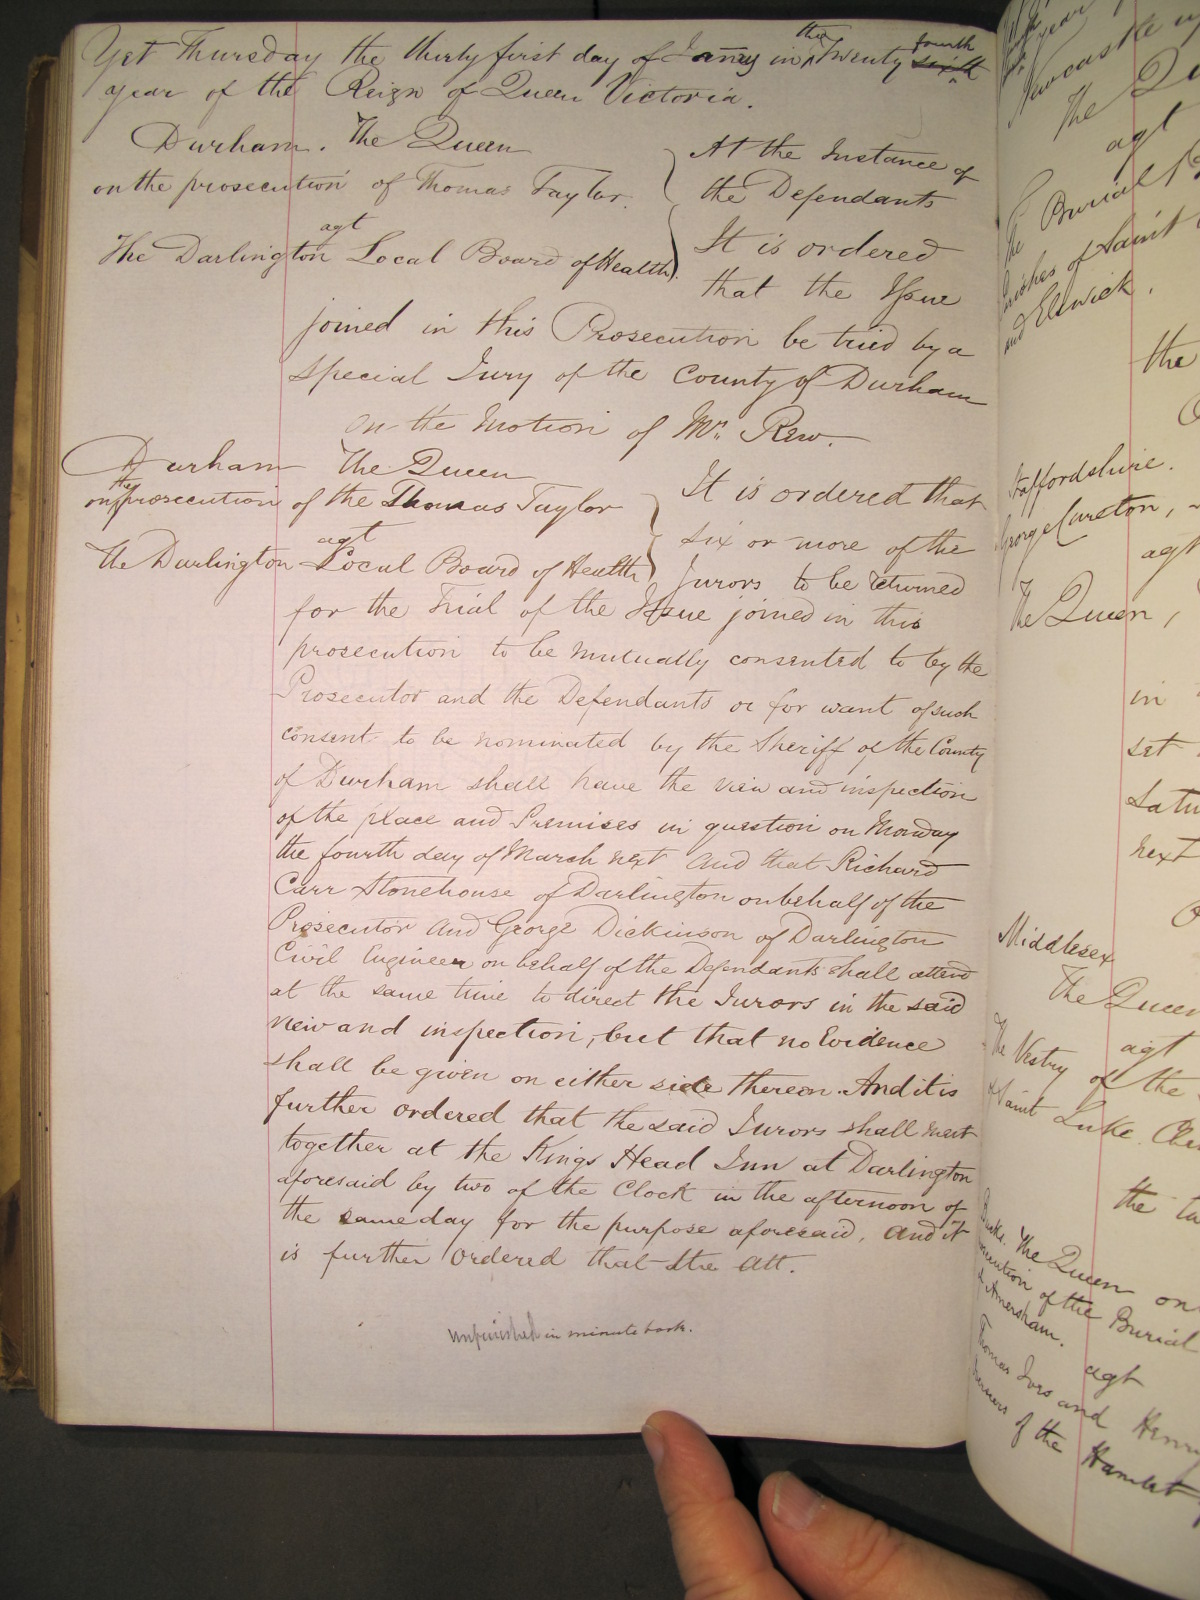 Yet Thursday the thirty first day of Janry in the Twenty fourth sixth
year of the Reign of Queen Victoria.
Durham. The Queen
on the prosecution of Thomas Taylor.
agt
The Darlington Local Board of Health.
At the Instance of
the Defendants
It is ordered
that the Issue
joined in this Prosecution be tried by a
special Jury of the County of Durham
on the Motion of Mr. Rew.
Durham The Queen
on the prosecution of the Thomas Taylor
agt
The Darlington Local Board of Health
It is ordered that
six or more of the
Jurors to be returned
for the Trial of the Issue joined in this
prosecution to be mutually consented to by the
Prosecutor and the Defendants or for want of such
consent to be nominated by the Sheriff of the County
of Durham shall have the view and inspection
of the place and Premises in question on Monday
the fourth day of March next and that Richard
Carr Stonehouse of Darlington on behalf of the
Prosecutor and George Dickinson of Darlington
Civil Engineer on behalf of the Defendants shall attend
at the same time to direct the Jurors in the said
view and inspection, but that no Evidence
shall be given on either side thereon. And it is
further ordered that the said Jurors shall meet
together at the Kings Head Inn at Darlington
aforesaid by two of the Clock in the afternoon of
the same day for the purpose aforesaid, and it
is further ordered that the Att.
unfinished in minute book.
Newcastle
The Qu
agt
The Burial
rishes of Saint
and Elswick.
the
Staffordshire.
George Careton,
agt
The Queen,
in
set
Satu
next
Middlesex
The Queen
agt
The Vestry of the
Saint Luke
the
Bucks. The Queen on
ecution of the Burial
Amersham.
agt
Thomas Ives and Henry
of the Hamlet